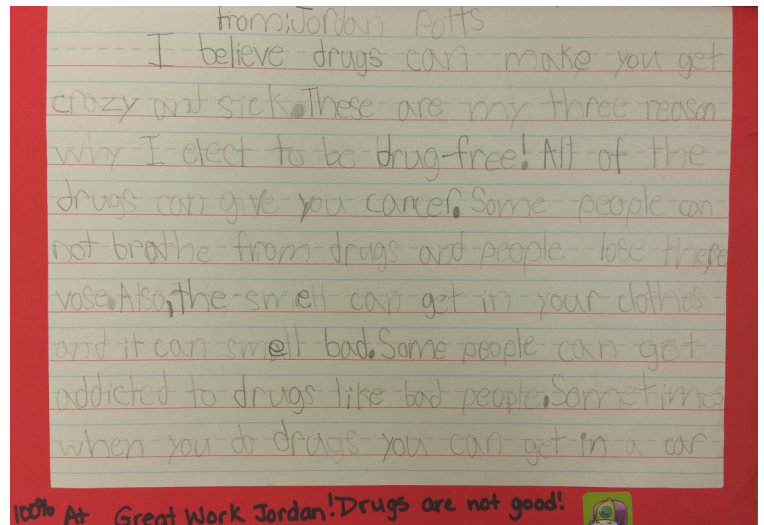 from: Jordan Potts
I believe drugs can make you get
crazy and sick. These are my three reason
why I elect to be drug-free! All of the
drugs can give you cancer. Some people can
not brathe from drugs and people lose there
vose. Also, the smell can get in your clothes
and it can smell bad. Some people can get
addicted to drugs like bad people. Sometimes
when you do drugs you can get in a car
100% A+ Great Work Jordan! Drugs are not good!